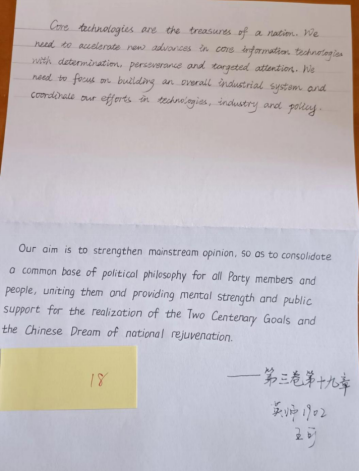 Core technologies are the treasures of a nation. We
need to accelerate new advances in core information technologies
with determination, perseverance and targeted attention. We
need to focus on building an overall industrial system and
coordinate our efforts in technologies, industry and policy.
Our aim is to strengthen mainstream opinion, so as to consolidate
a common base of political philosophy for all Party members and
people, uniting them and providing mental strength and public
support for the realization of the Two Centenary Goals and
the Chinese Dream of national rejuvenation.
18
——第三卷第十九章
英师1902
王